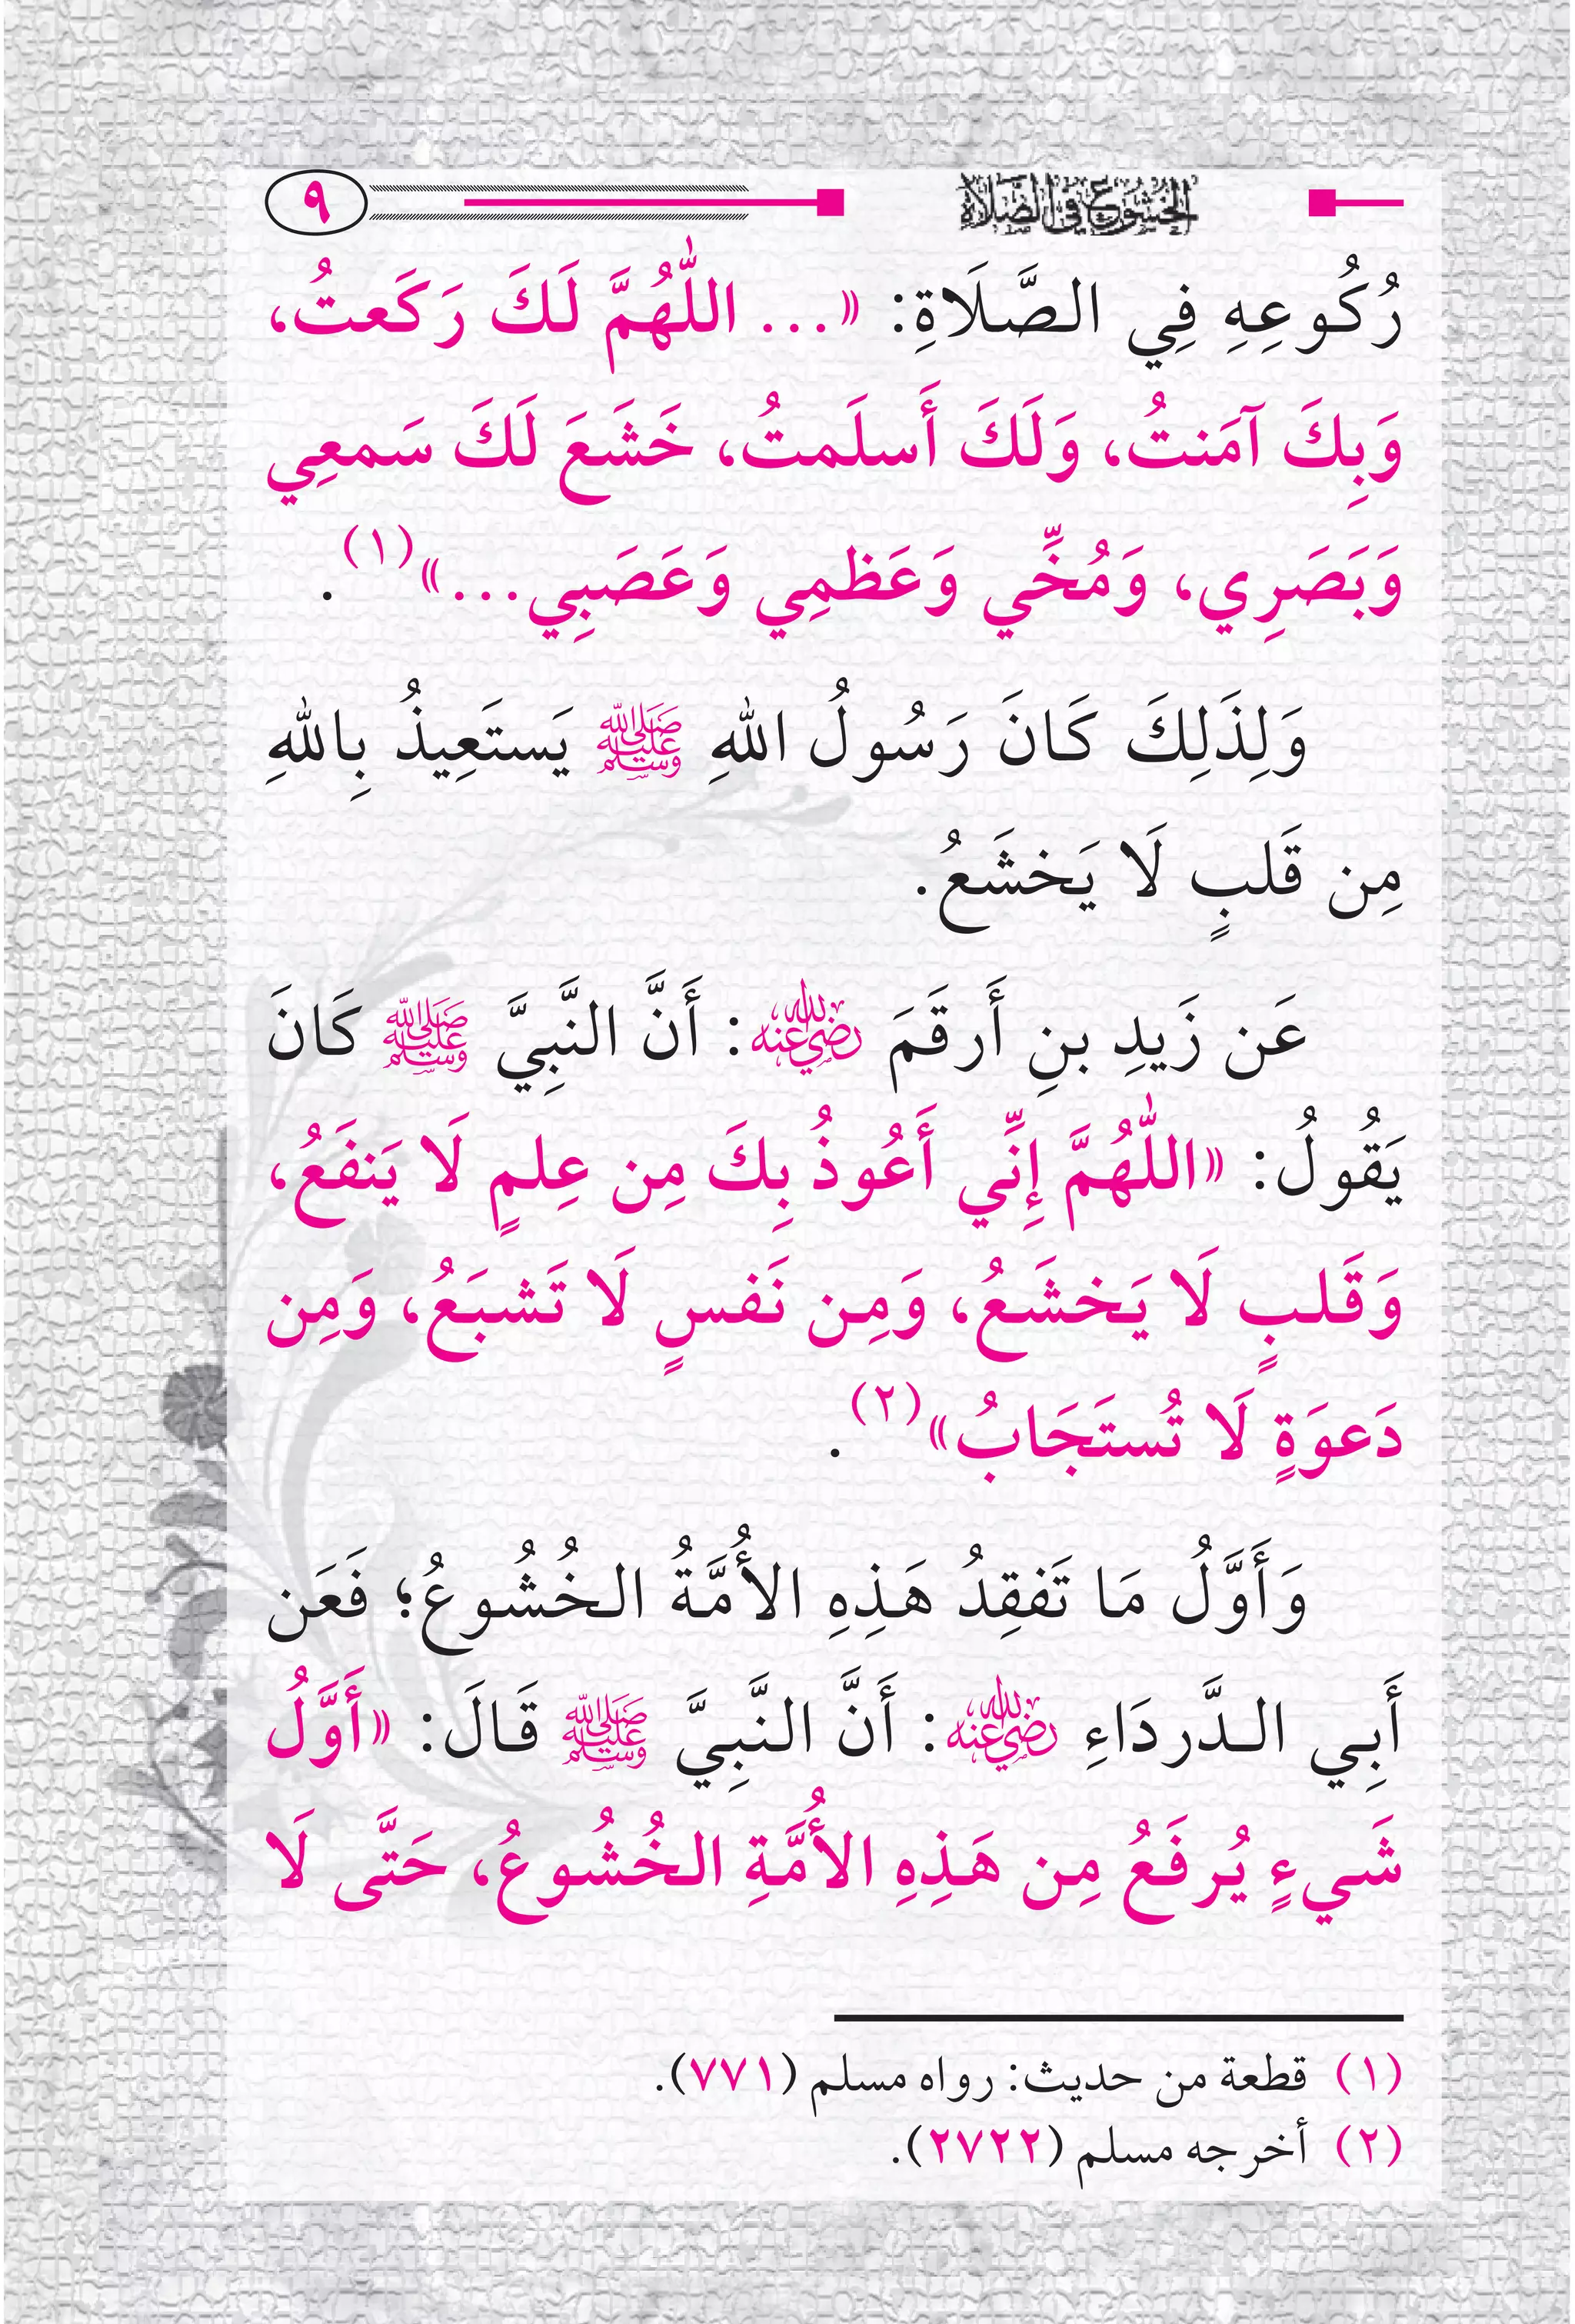 الخشوع في الصلاة ٩
رُكُوعِهِ فِي الصَّلَاةِ: «... اللَّهُمَّ لَكَ رَكَعتُ،
وَبِكَ آمَنتُ، وَلَكَ أَسلَمتُ، خَشَعَ لَكَ سَمعِي
وَبَصَرِي، وَمُخِّي وَعَظمِي وَعَصَبِي...»(١).
وَلِذَلِكَ كَانَ رَسُولُ اللهِ ﷺ يَستَعِيذُ بِاللهِ
مِن قَلبٍ لَا يَخشَعُ.
عَن زَيدِ بنِ أَرقَمَ رضي الله عنه: أَنَّ النَّبِيَّ ﷺ كَانَ
يَقُولُ: «اللَّهُمَّ إِنِّي أَعُوذُ بِكَ مِن عِلمٍ لَا يَنفَعُ،
وَقَلبٍ لَا يَخشَعُ، وَمِن نَفسٍ لَا تَشبَعُ، وَمِن
دَعوَةٍ لَا تُستَجَابُ»(٢).
وَأَوَّلُ مَا تَفقِدُ هَذِهِ الأُمَّةُ الخُشُوعُ؛ فَعَن
أَبِي الدَّردَاءِ رضي الله عنه: أَنَّ النَّبِيَّ ﷺ قَالَ: «أَوَّلُ
شَيءٍ يُرفَعُ مِن هَذِهِ الأُمَّةِ الخُشُوعُ، حَتَّى لَا
(١) قطعة من حديث: رواه مسلم (٧٧١).
(٢) أخرجه مسلم (٢٧٢٢).